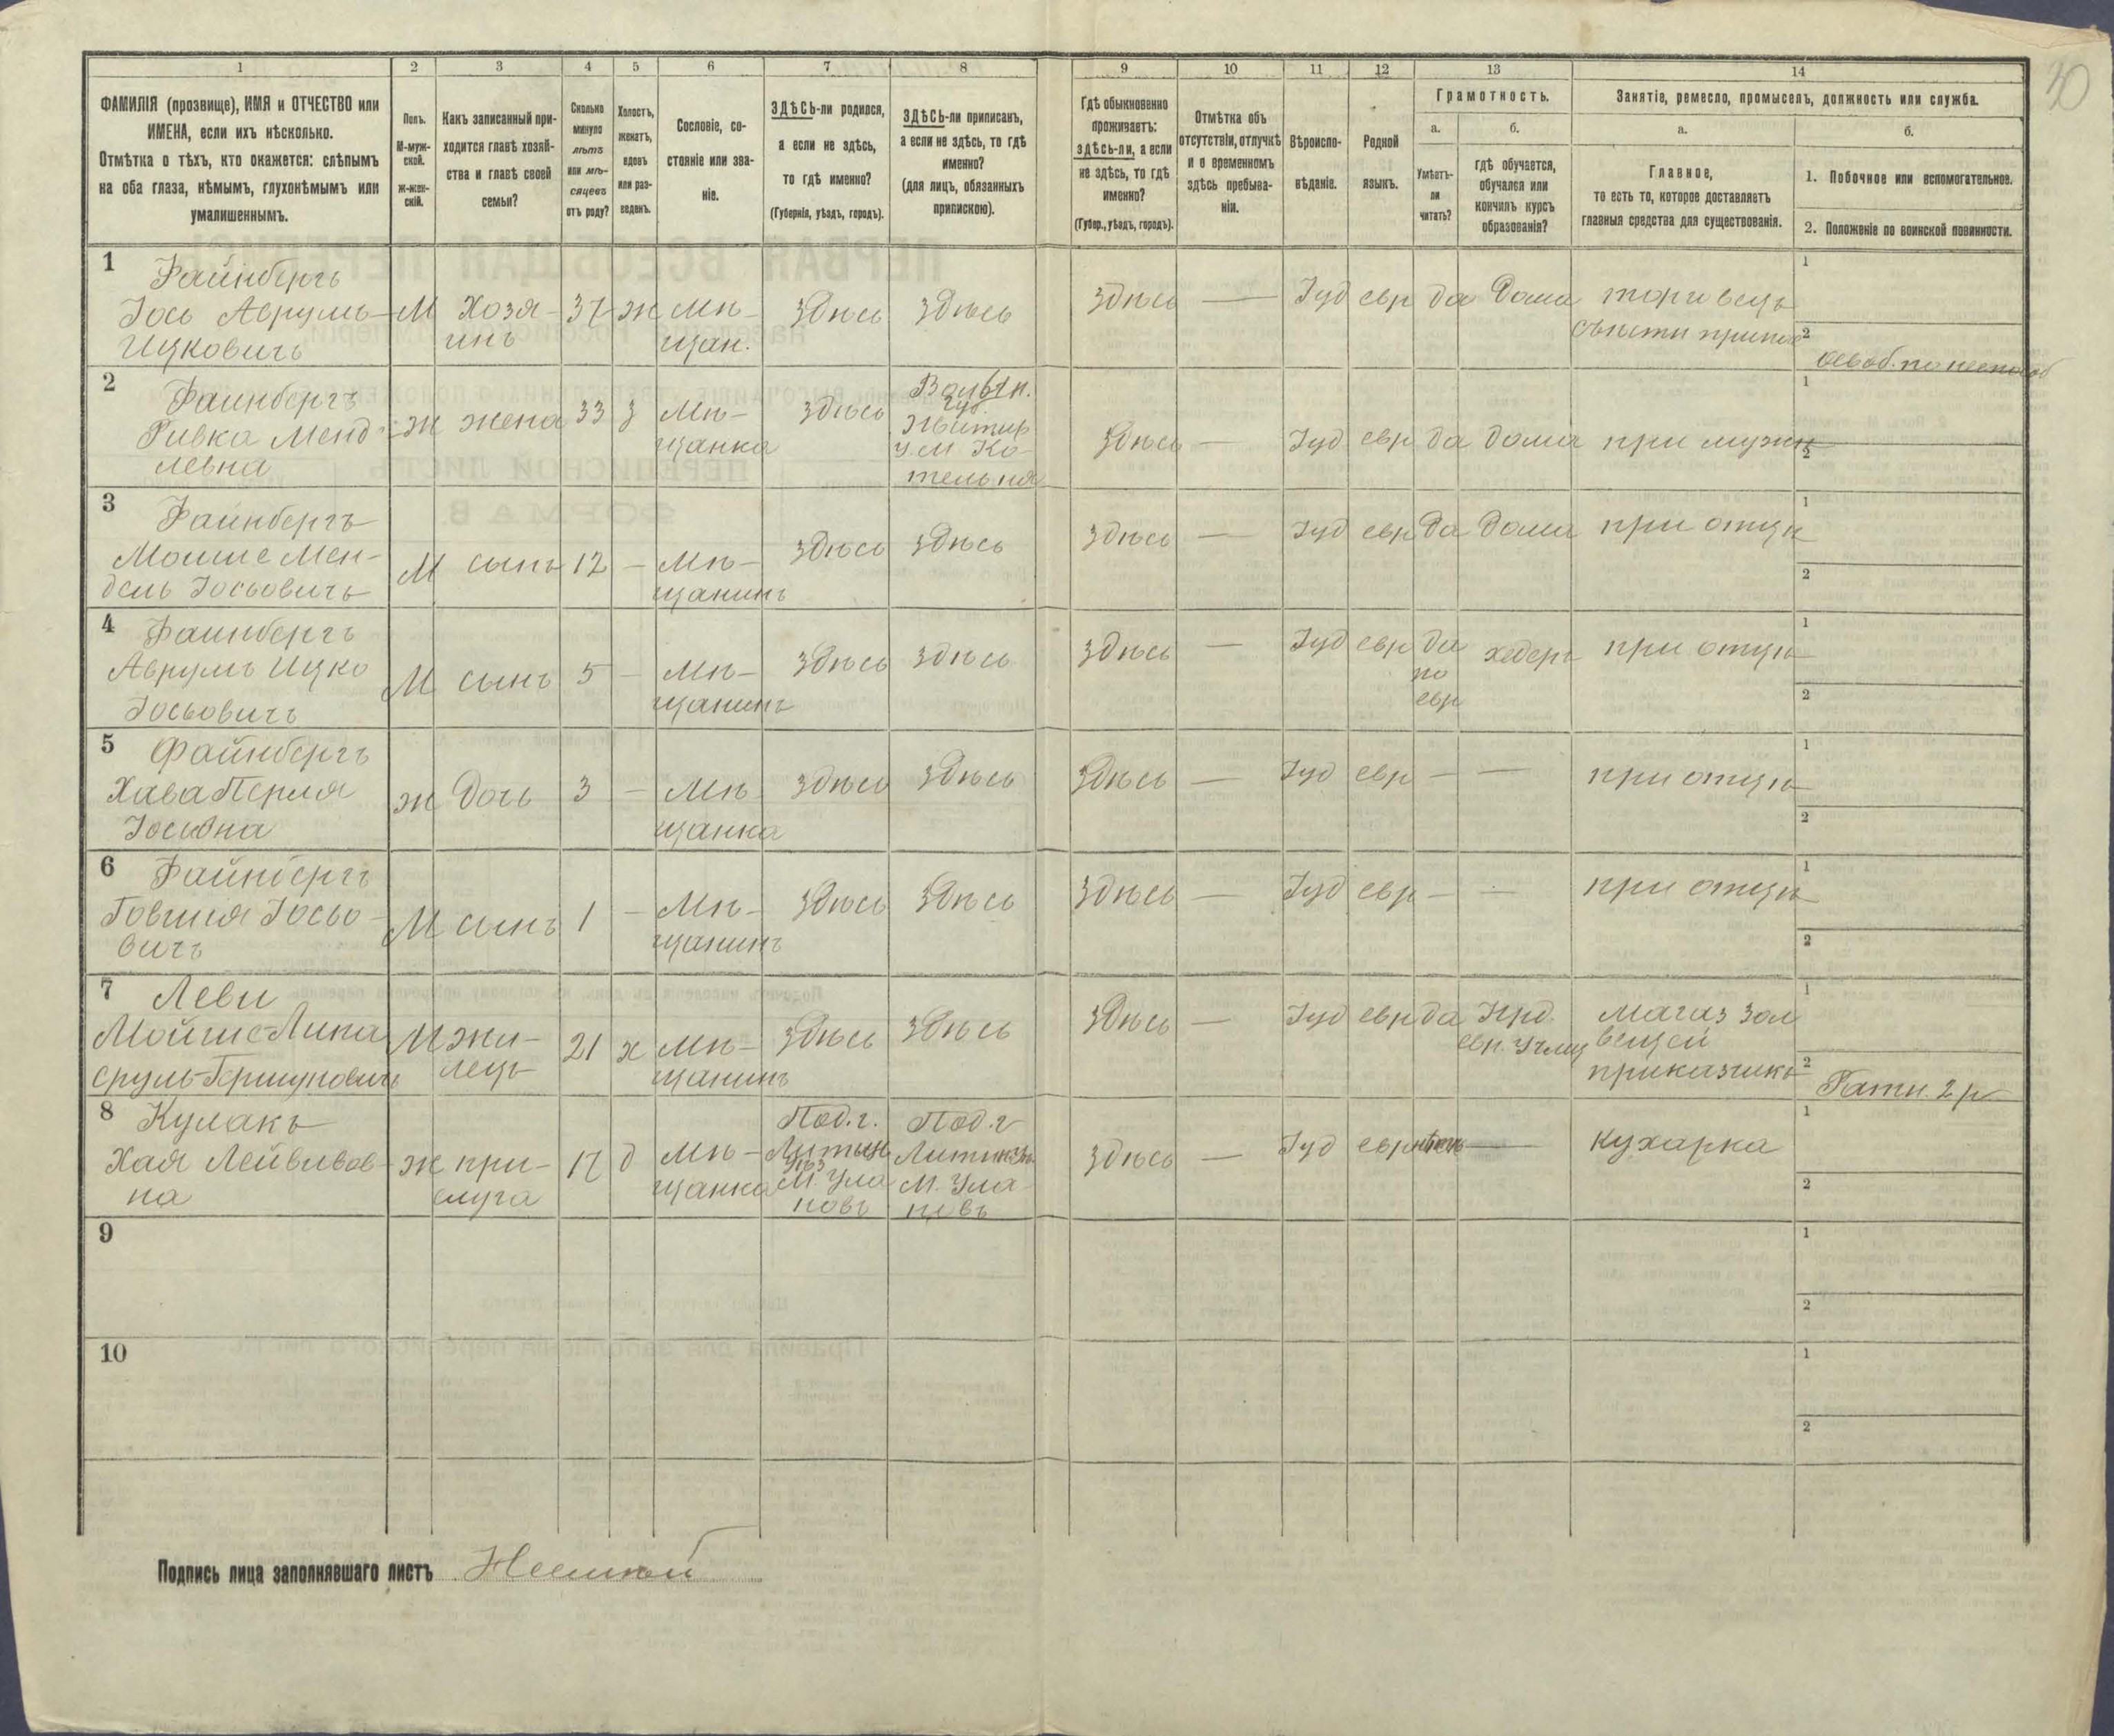 20
1 2 3 4 5 6 7 8 9 10 11 12 13 14
ФАМИЛІЯ (прозвище), ИМЯ и ОТЧЕСТВО или
ИМЕНА, если ихъ нѣсколько.
Отмѣтка о тѣхъ, кто окажется: слѣпымъ
на оба глаза, нѣмымъ, глухонѣмымъ или
умалишеннымъ.
Полъ.
М-муж-
ской.
ж-жен-
скій.
Какъ записанный при-
ходится главѣ хозяй-
ства и главѣ своей
семьи?
Сколько
минуло
лѣтъ
или мѣ-
сяцевъ
отъ роду?
Холостъ,
женатъ,
вдовъ
или раз-
веденъ.
Сословіе, со-
стояніе или зва-
ніе.
ЗДѢСЬ-ли родился,
а если не здѣсь,
то гдѣ именно?
(Губернія, уѣздъ, городъ).
ЗДѢСЬ-ли приписанъ,
а если не здѣсь, то гдѣ
именно?
(для лицъ, обязанныхъ
припискою).
Гдѣ обыкновенно
проживаетъ:
здѣсь-ли, а если
не здѣсь, то гдѣ
именно?
(Губер., уѣздъ, городъ).
Отмѣтка объ
отсутствіи, отлучкѣ
и о временномъ
здѣсь пребыва-
ніи.
Вѣроиспо-
вѣданіе.
Родной
языкъ.
Грамотность.
а.
Умѣетъ-
ли
читать?
б.
гдѣ обучается,
обучался или
кончилъ курсъ
образованія?
Занятіе, ремесло, промыселъ, должность или служба.
а.
Главное,
то есть то, которое доставляетъ
главныя средства для существованія.
б.
1. Побочное или вспомогательное.
2. Положеніе по воинской повинности.
1 Файнбергъ
Іось Аврумъ-
Ицковичъ
М
Хозя-
инъ
37
ж
Мѣ-
щан.
здѣсь
здѣсь
здѣсь
—
Іуд
евр
да
дома
торговецъ
1
2
2 Файнбергъ
Ривка Менд-
левна
ж
жена
33
з
Мѣ-
щанка
здѣсь
Волын.
губ.
Житмр
у. м Ко-
тельня
здѣсь
—
Іуд
евр
да
дома
при мужѣ
1
2
3 Файнбергъ
Мошие Мен-
дель Іосьовичъ
М
сынъ
12
—
Мѣ-
щанинъ
здѣсь
здѣсь
здѣсь
—
Іуд
евр
да
дома
при отцѣ
1
2
4 Файнбергъ
Аврумъ Ицко
Іосьовичъ
М
сынъ
5
—
Мѣ-
щанинъ
здѣсь
здѣсь
здѣсь
—
Іуд
евр
да
по
евр
хедеръ
при отцѣ
1
2
5 Файнбергъ
Хава Перля
Іосьовна
ж
дочь
3
—
Мѣ
щанка
здѣсь
здѣсь
здѣсь
—
Іуд
евр
—
—
при отцѣ
1
2
6 Файнбергъ
Говшия Іосьо-
вичъ
М
сынъ
1
—
Мѣ-
щанинъ
здѣсь
здѣсь
здѣсь
—
Іуд
евр
—
—
при отцѣ
1
2
7 Леви
Мойше-Липа
М
жи-
лецъ
21
х
Мѣ-
щанинъ
здѣсь
здѣсь
здѣсь
—
Іуд
евр
да
евр. Учил
магаз зол
вещей
приказчикъ
1
2 Ратн. 2 р
8 Кулакъ
Хая Лейвивов-
на
ж
при-
слуга
17
д
Мѣ-
щанка
Под. г.
Литын
уѣз
М. Ула
новъ
Под. г
М. Ула-
новъ
здѣсь
—
Іуд
евр
нѣтъ
—
кухарка
1
2
9
1
2
10
1
2
Подпись лица заполнявшаго листъ